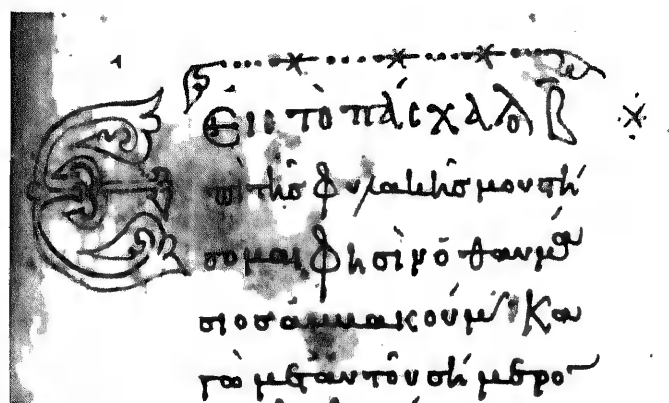 Εις τὸ πάσχα λο Β
Επὶ τῆς φυλακῆς μου στή
σομαι φησὶν ὁ θαυμά
σιος ἀμβακούμ· Κα
γὼ μετ αὐτοῦ σήμερο